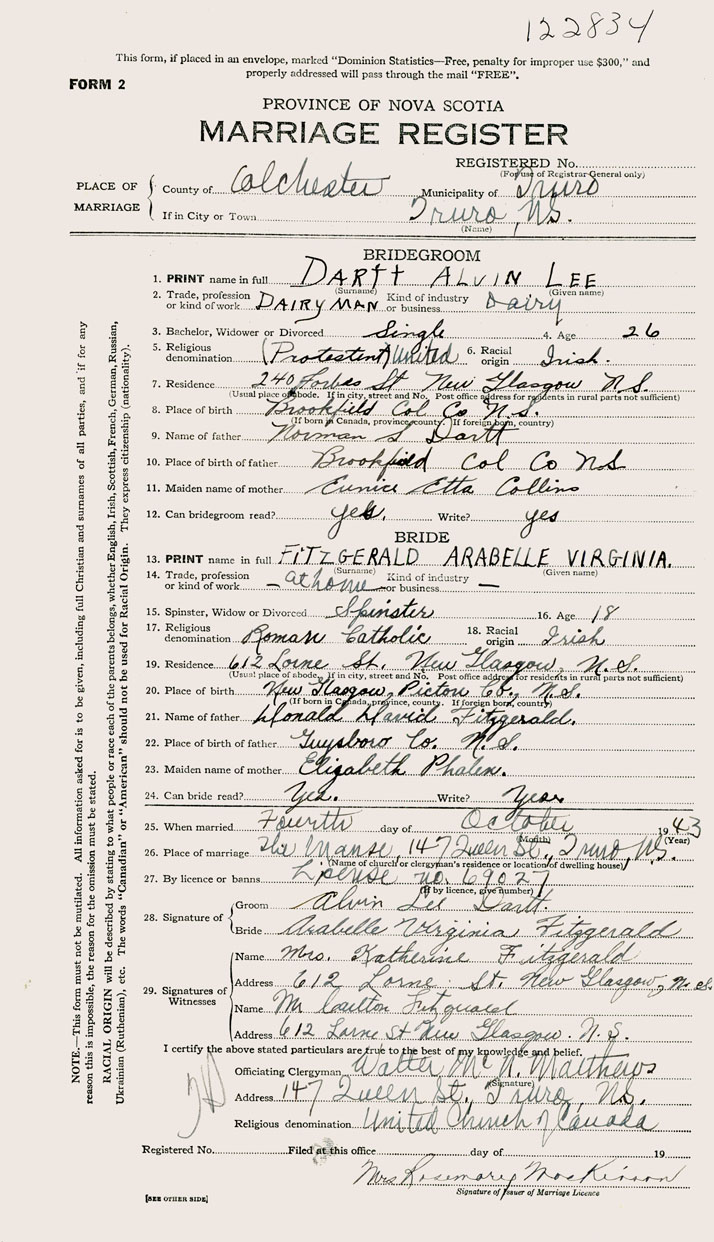 122834
This form, if placed in an envelope, marked "Dominion Statistics—Free, penalty for improper use $300," and
properly addressed will pass through the mail "FREE".
FORM 2
PROVINCE OF NOVA SCOTIA
MARRIAGE REGISTER
REGISTERED No.
(For use of Registrar General only)
PLACE OF MARRIAGE
County of Colchester Municipality of Truro
If in City or Town Truro, N.S.
(Name)
BRIDEGROOM
1. PRINT name in full DARTT ALVIN LEE
(Surname) (Given name)
2. Trade, profession or kind of work DAIRYMAN Kind of industry or business Dairy
3. Bachelor, Widower or Divorced Single 4. Age 26
5. Religious denomination (Protestent) United 6. Racial origin Irish.
7. Residence 240 Forbes St New Glasgow N.S.
(Usual place of abode. If in city, street and No. Post office address for residents in rural parts not sufficient)
8. Place of birth Brookfield Col Co N.S.
(If born in Canada, province, county. If foreign born, country)
9. Name of father Norman S Dartt
10. Place of birth of father Brookfield Col Co NS
11. Maiden name of mother Eunice Etta Collins
12. Can bridegroom read? yes. Write? yes
BRIDE
13. PRINT name in full FITZGERALD ARABELLE VIRGINIA.
(Surname) (Given name)
14. Trade, profession or kind of work — at home — Kind of industry or business —
15. Spinster, Widow or Divorced Spinster 16. Age 18
17. Religious denomination Roman Catholic 18. Racial origin Irish
19. Residence 612 Lorne St. New Glasgow, N.S.
(Usual place of abode. If in city, street and No. Post office address for residents in rural parts not sufficient)
20. Place of birth New Glasgow, Pictou Co., N.S.
(If born in Canada, province, county. If foreign born, country)
21. Name of father Donald David Fitzgerald.
22. Place of birth of father Guysboro Co. N.S.
23. Maiden name of mother Elizabeth Phalen.
24. Can bride read? Yes. Write? Yes
25. When married Fourth day of October 1943
(Month) (Year)
26. Place of marriage The Manse, 147 Queen St., Truro, N.S.
(Name of church or clergyman's residence or location of dwelling house)
27. By licence or banns License no. 69027
(If by licence, give number)
28. Signature of
Groom Alvin Lee Dartt.
Bride Arabelle Virginia Fitzgerald
29. Signatures of Witnesses
Name Mrs. Katherine Fitzgerald
Address 612 Lorne St. New Glasgow, N.S.
Name Mr Carlton Fitzgerald
Address 612 Lorne St New Glasgow. N.S.
I certify the above stated particulars are true to the best of my knowledge and belief.
Officiating Clergyman Walter McN. Matthews
(Signature)
Address 147 Queen St., Truro, N.S.
Religious denomination United Church of Canada
Registered No. Filed at this office day of 19
Mrs Rosemary MacKinnon
Signature of Issuer of Marriage Licence
[SEE OTHER SIDE]
NOTE.—This form must not be mutilated. All information asked for is to be given, including full Christian and surnames of all parties, and if for any
reason this is impossible, the reason for the omission must be stated.
RACIAL ORIGIN will be described by stating to what people or race each of the parents belongs, whether English, Irish, Scottish, French, German, Russian,
Ukrainian (Ruthenian), etc. The words "Canadian" or "American" should not be used for Racial Origin. They express citizenship (nationality).